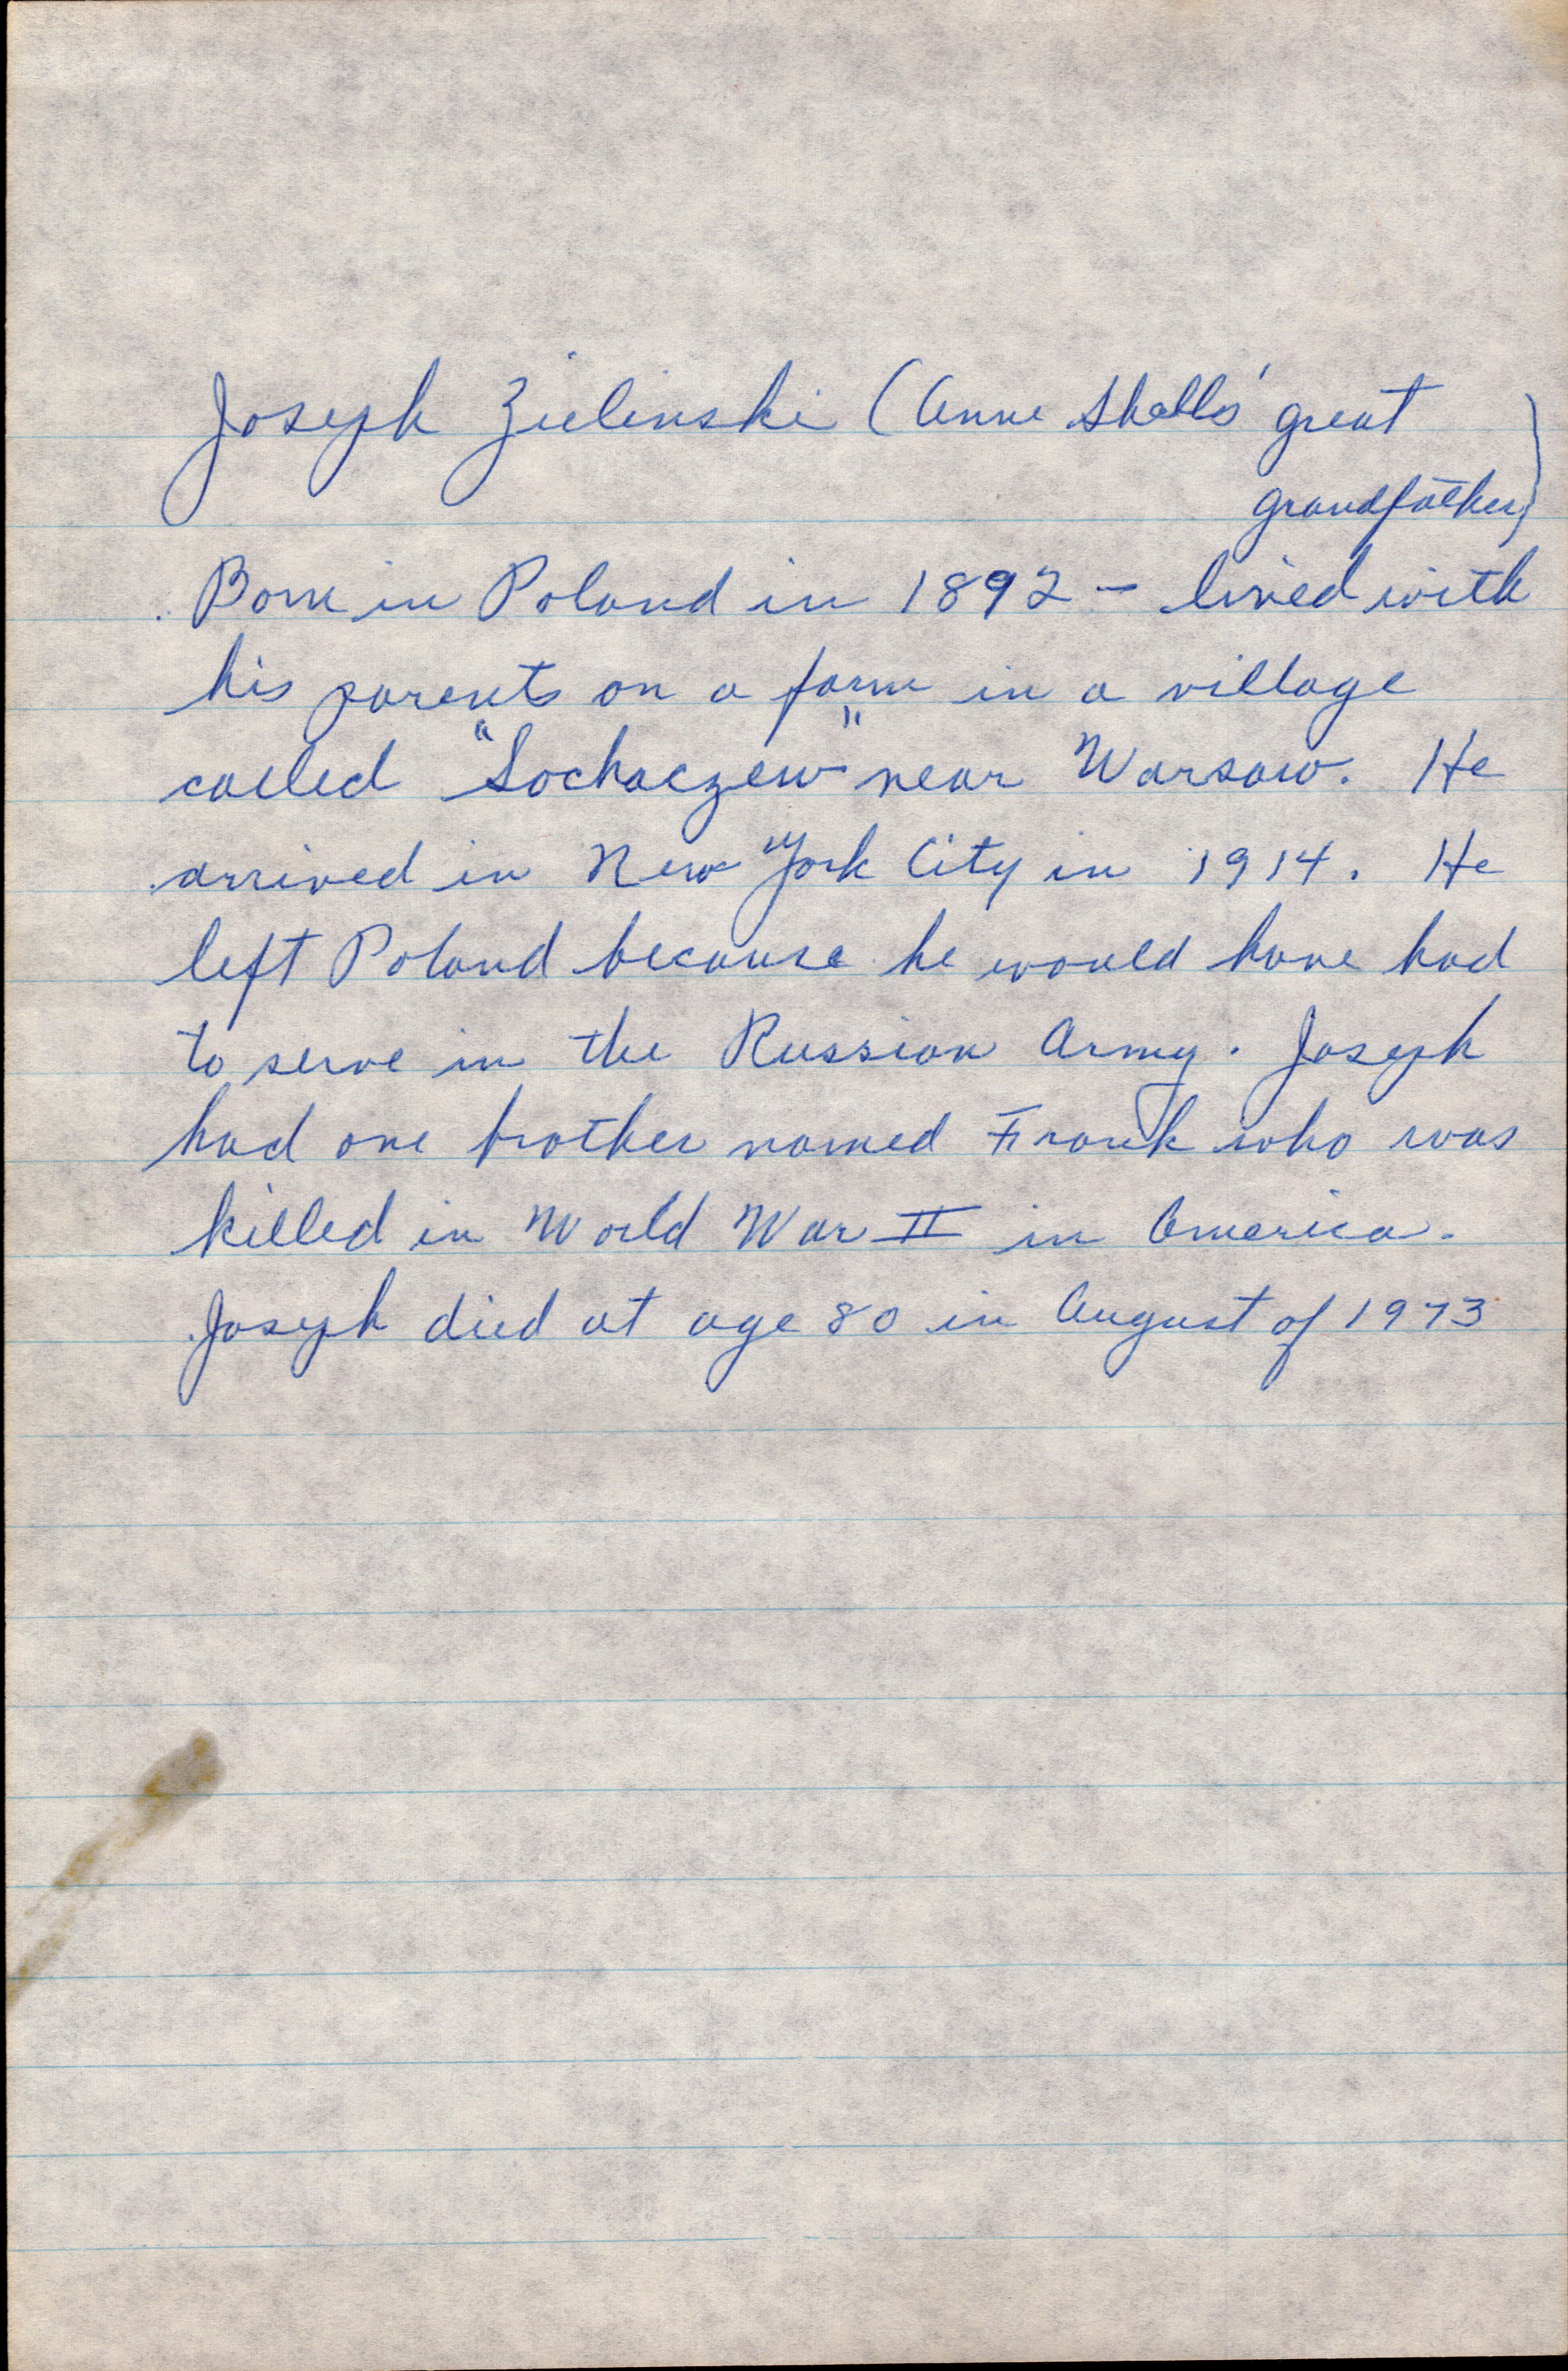 Joseph Zielinski (Anne Shalls' great
grandfather)
Born in Poland in 1892 - lived with
his parents on a farm in a village
called "Sochaczew" near Warsaw. He
arrived in New York City in 1914. He
left Poland because he would have had
to serve in the Russian Army. Joseph
had one brother named Frank who was
killed in World War II in America.
Joseph died at age 80 in August of 1973